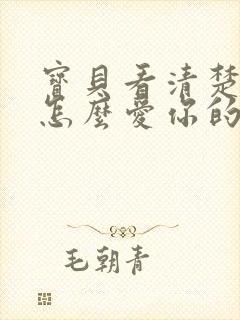 寶貝看清楚
怎麼愛你的
毛朝青